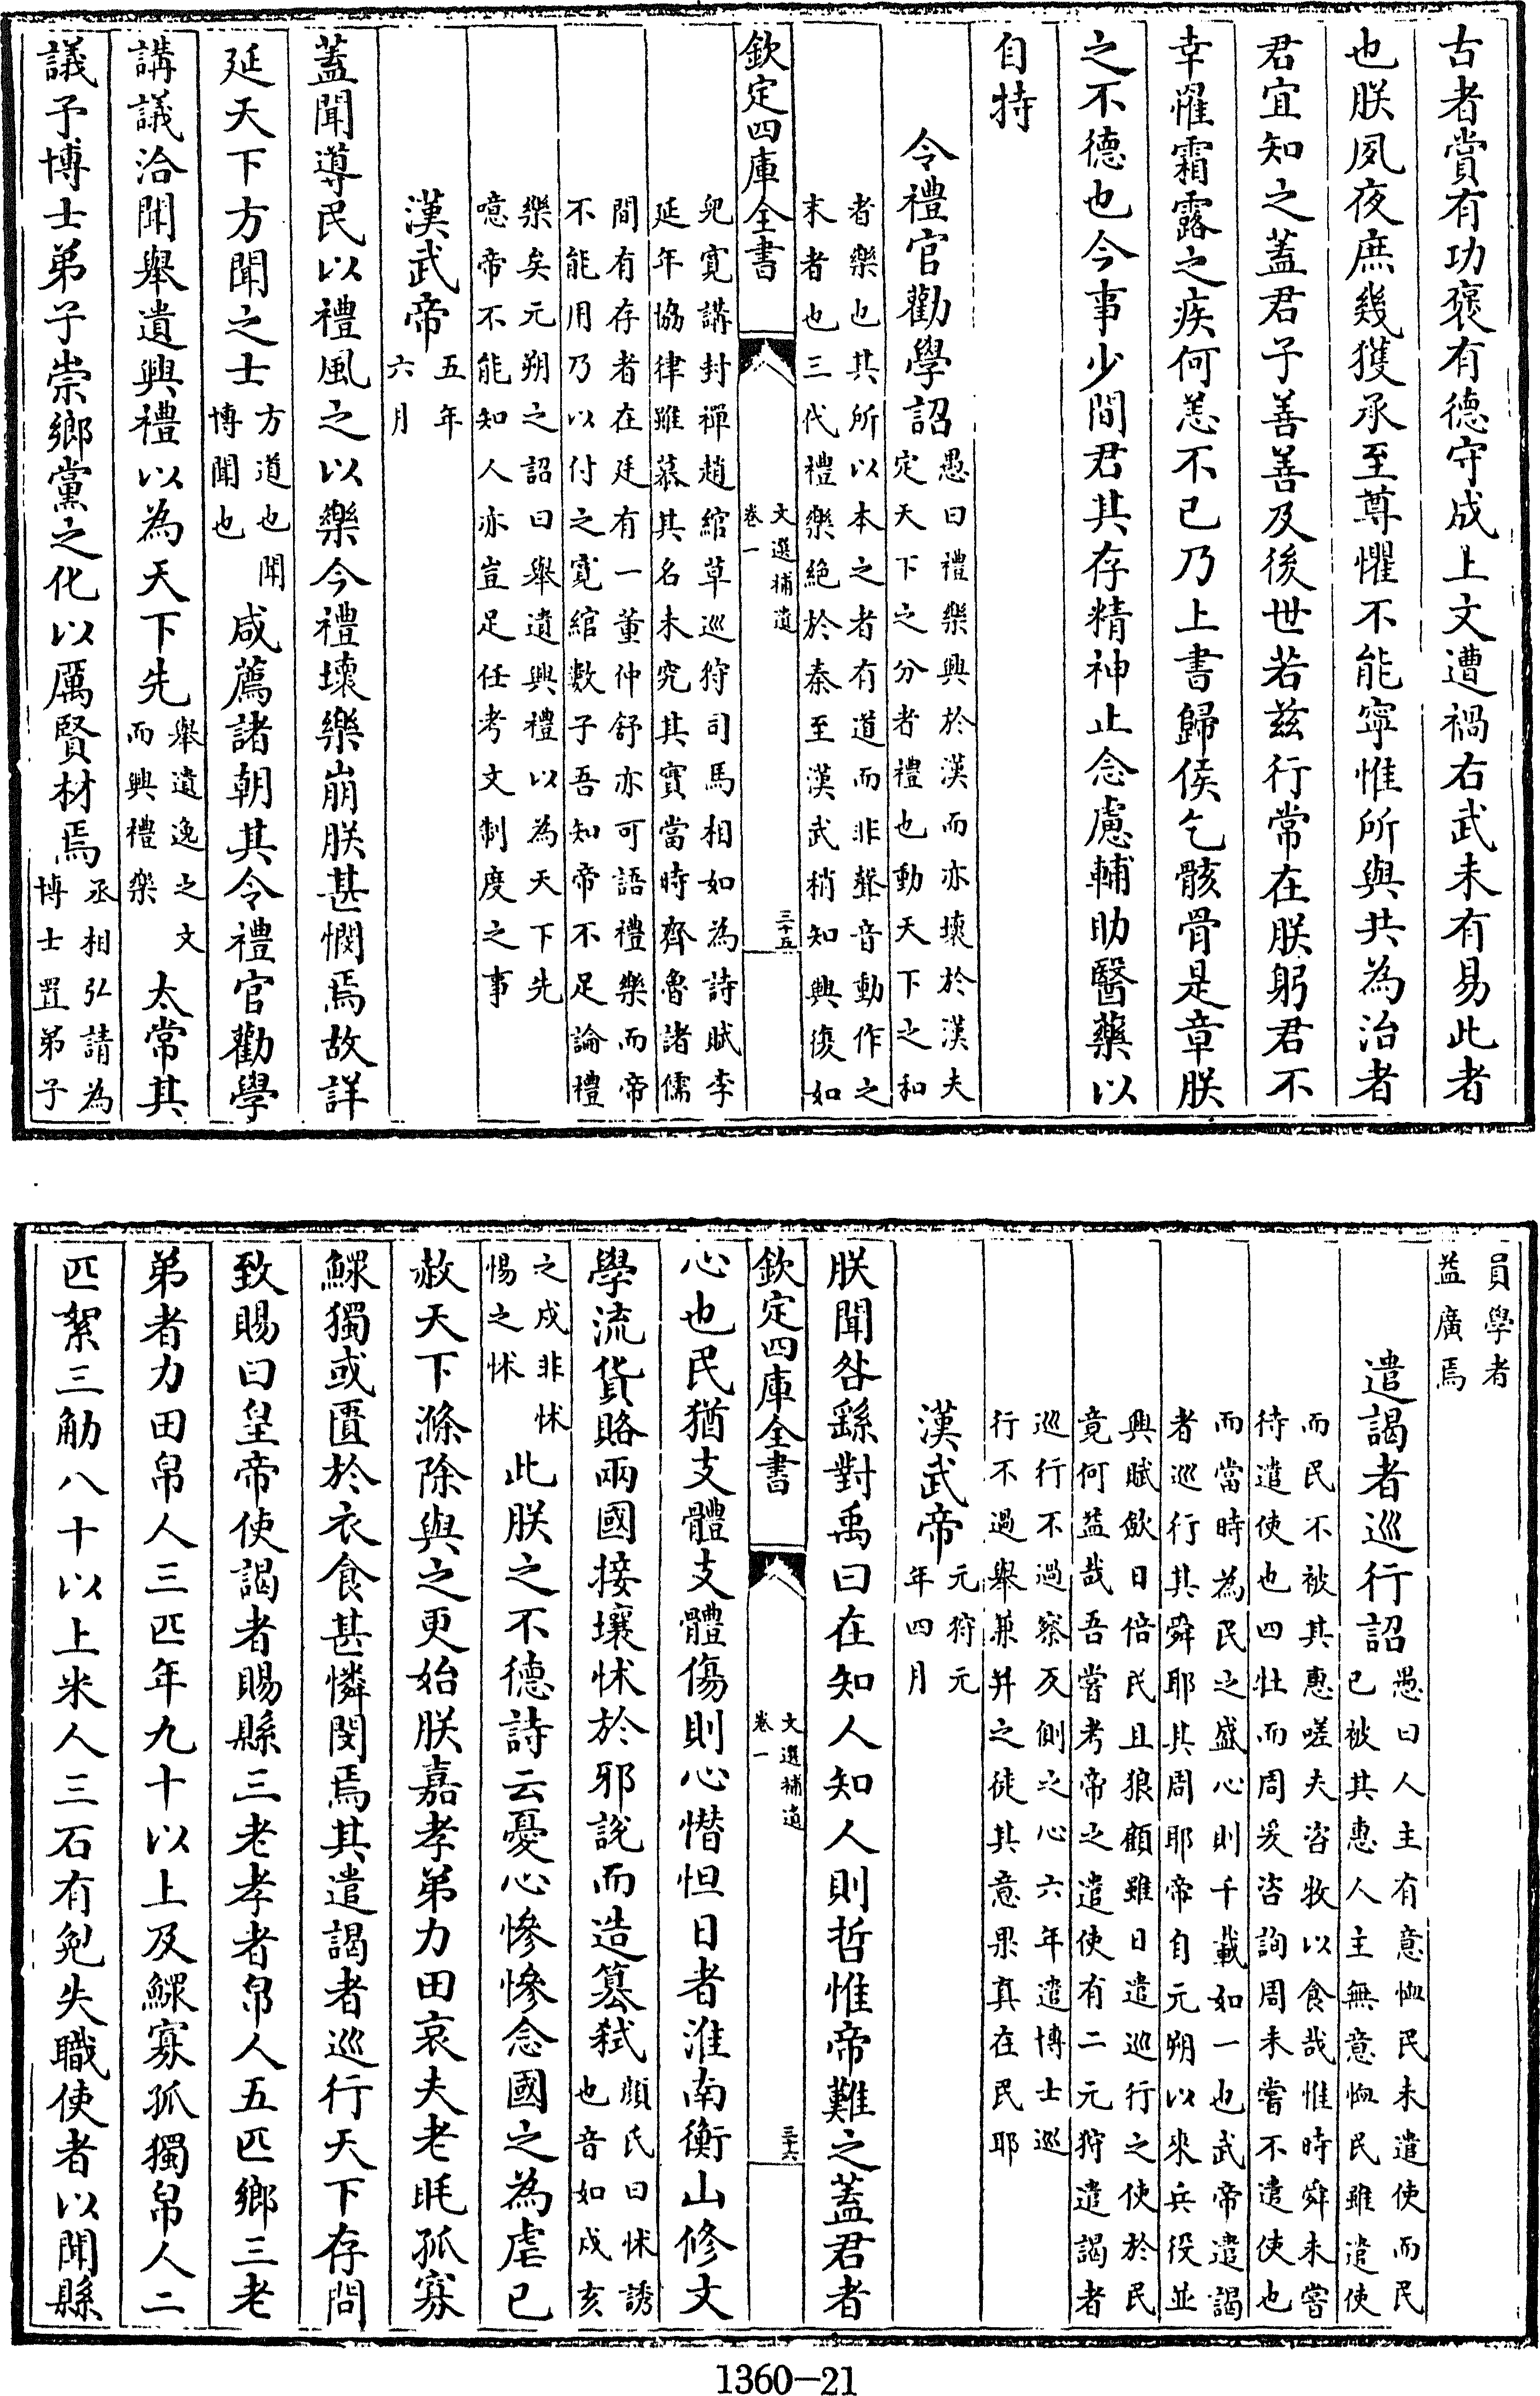 古者賞有功褒有德守成上文遭禍右武未有易此者
也朕夙夜庶幾獲承至尊懼不能寧惟所與共為治者
君宜知之蓋君子善善及後世若茲行常在朕躬君不
幸罹霜露之疾何恙不已乃上書歸侯乞骸骨是章朕
之不德也今事少間君其存精神止念慮輔助醫藥以
自持
令禮官勸學詔
愚曰禮樂興於漢而亦壞於漢夫
定天下之分者禮也動天下之和
者樂也其所以本之者有道而非聲音動作之
末者也三代禮樂絕於秦至漢武稍知興復如
欽定四庫全書
文選補遺
卷一
三十五
兒寬講封禪趙綰草巡狩司馬相如為詩賦李
延年協律雖慕其名未究其實當時齊魯諸儒
間有存者在廷有一董仲舒亦可語禮樂而帝
不能用乃以付之寬綰數子吾知帝不足論禮
樂矣元朔之詔曰舉遺興禮以為天下先
噫帝不能知人亦豈足任考文制度之事
漢武帝
五年
六月
蓋聞導民以禮風之以樂今禮壞樂崩朕甚憫焉故詳
延天下方聞之士
方道也聞
博聞也
咸薦諸朝其令禮官勸學
講議洽聞舉遺興禮以為天下先
舉遺逸之文
而興禮樂
太常其
議予博士弟子崇鄉黨之化以厲賢材焉
丞相弘請為
博士置弟子
員學者
益廣焉
遣謁者巡行詔
愚曰人主有意恤民未遣使而民
已被其惠人主無意恤民雖遣使
而民不被其惠嗟夫咨牧以食哉惟時舜未嘗
待遣使也四牡而周爰咨詢周未嘗不遣使也
而當時為民之盛心則千載如一也武帝遣謁
者巡行其舜耶其周耶帝自元朔以來兵役並
興賦斂日倍民且狼顧雖日遣巡行之使於民
竟何益哉吾嘗考帝之遣使有二元狩遣謁者
巡行不過察反側之心六年遣博士巡
行不過舉兼并之徒其意果真在民耶
漢武帝
元狩元
年四月
朕聞咎繇對禹曰在知人知人則哲惟帝難之蓋君者
欽定四庫全書
文選補遺
卷一
三十六
心也民猶支體支體傷則心憯怛日者淮南衡山修文
學流貨賂兩國接壤怵於邪說而造篡弒
顏氏曰怵誘
也音如戍亥
之戍非怵
惕之怵
此朕之不德詩云憂心慘慘念國之為虐已
赦天下滌除與之更始朕嘉孝弟力田哀夫老眊孤寡
鰥獨或匱於衣食甚憐閔焉其遣謁者巡行天下存問
致賜曰皇帝使謁者賜縣三老孝者帛人五匹鄉三老
弟者力田帛人三匹年九十以上及鰥寡孤獨帛人二
匹絮三觔八十以上米人三石有寃失職使者以聞縣
1360-21